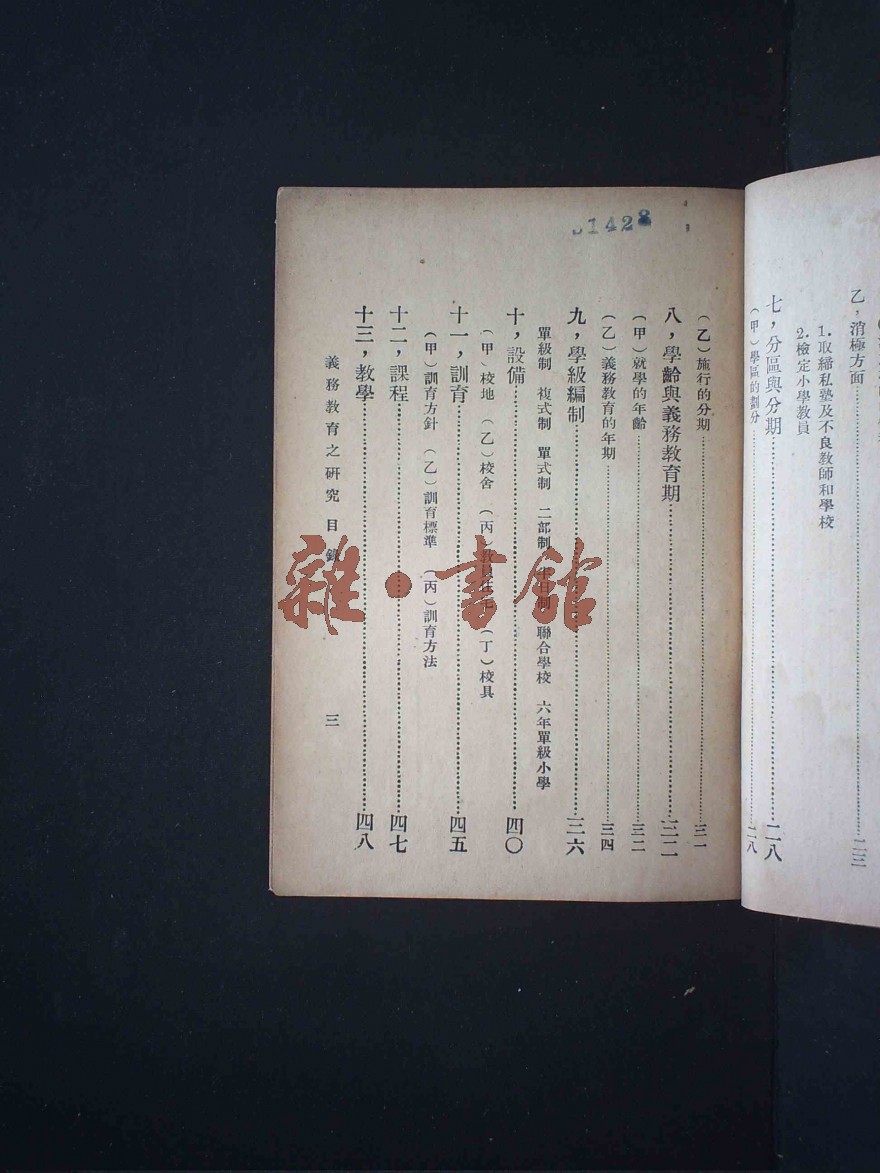 乙，消極方面……二三
1.取締私塾及不良教師和學校
2.檢定小學教員
七，分區與分期……二八
（甲）學區的劃分……二八
1428
（乙）施行的分期……三一
八，學齡與義務教育期……三二
（甲）就學的年齡……三二
（乙）義務教育的年期……三四
九，學級編制……三六
單級制　複式制　單式制　二部制　半日制　聯合學校　六年單級小學
十，設備……四〇
（甲）校地　（乙）校舍　（丙）教員住宅　（丁）校具
十一，訓育……四五
（甲）訓育方針　（乙）訓育標準　（丙）訓育方法
十二，課程……四七
十三，教學……四八
義務教育之研究　目錄　三
雜·書館